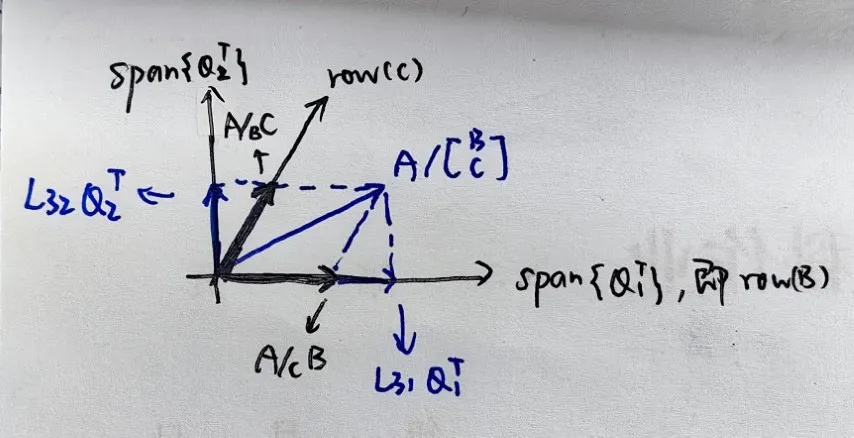 span{Q₂ᵀ}
row(C)
A/BC
A/[B
C]
L₃₂Q₂ᵀ
span{Q₁ᵀ}, 即 row(B)
A/CB
L₃₁Q₁ᵀ